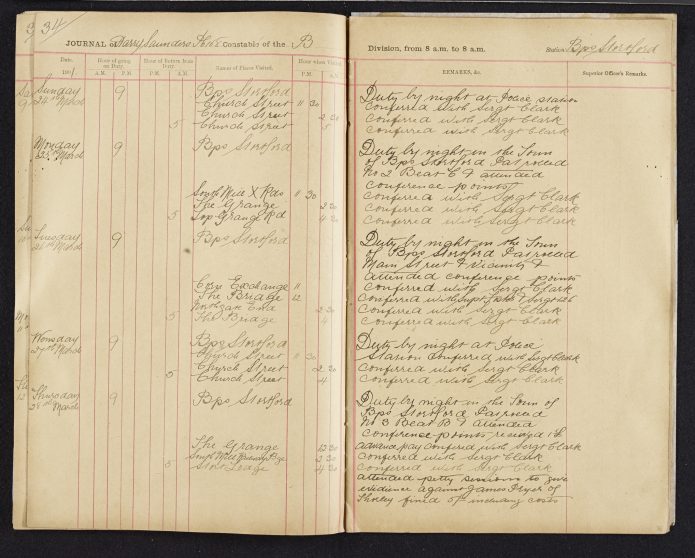 34
JOURNAL of Harry Saunders Constable of the B
Date. Hour of going on Duty. Hour of Return from Duty. Names of Places Visited. Hour when Visited.
1901 A.M. P.M. A.M. P.M. P.M. A.M.
Sunday 9 Bps Stortford
24th March Church Street 11 30
Church Street 2 30
5 Church Street 5
Monday 9 Bps Stortford
25th March
South Mill X Rds 11 30
The Grange 2 30
5 Top Grange Rd 4 30
Tuesday 9 Bps Stortford
26th March
Corn Exchange 11
The Bridge 12
Northgate End 2 30
5 The Bridge 4
Wensday 9 Bps Stortford
27th March Church Street 11 30
Church Street 2 30
5 Church Street 4
Thursday 9 Bps Stortford
28th March
The Grange 12 30
South Mill 2 30
5 Stort Lodge 4 30
Division, from 8 a.m. to 8 a.m. Station Bps Stortford
REMARKS, &c. Superior Officer's Remarks.
Duty by night at Police Station
Conferred with Sergt Clark
Conferred with Sergt Clark
Conferred with Sergt Clark
Duty by night in the Town
of Bps Stortford Patrolled
No 2 Beat & attended
Conference points
Conferred with Sergt Clark
Conferred with Sergt Clark
Conferred with Sergt Clark
Duty by night in the Town
of Bps Stortford Patrolled
Main Street & Vicinity &
attended conference points
Conferred with Sergt Clark
Conferred with Supt & Sergt
Conferred with Sergt Clark
Conferred with Sergt Clark
Duty by night at Police
Station Conferred with Sergt Clark
Conferred with Sergt Clark
Conferred with Sergt Clark
Duty by night in the Town of
Bps Stortford Patrolled
No 3 Beat & attended
Conference points received
advance pay Conferred with Sergt Clark
Conferred with Sergt Clark
Conferred with Sergt Clark
attended petty sessions to give
evidence against James Pryer of
fined of including costs